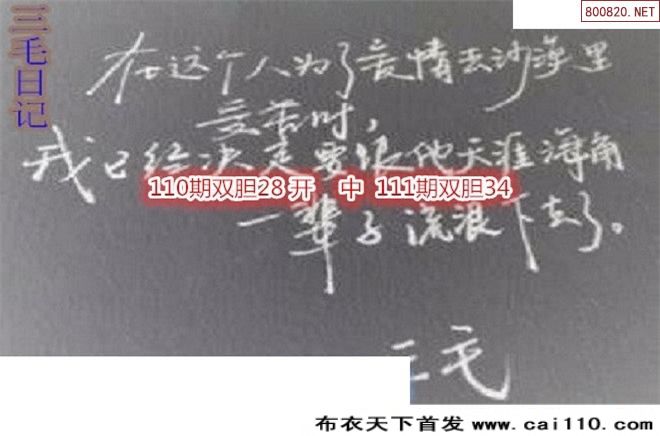 800820.NET
三毛日记
在这个人为了爱情去沙漠里
受苦时,
我已经决定要跟他天涯海角
110期双胆28 开 中 111期双胆34
一辈子流浪下去了。
三毛
布衣天下首发 www.cai110.com